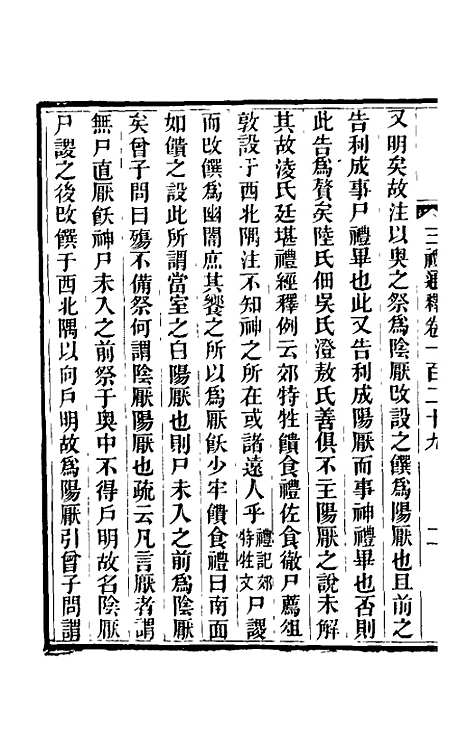 三禮通釋卷一百二十九
又明矣故注以奥之祭為陰厭改設之饌為陽厭也且前之
告利成事尸禮畢也此又告利成陽厭而事神禮畢也否則
此告為贅矣陸氏佃吳氏澄敖氏善俱不主陽厭之說未解
其故淩氏廷堪禮經釋例云郊特牲饋食禮佐食徹尸薦俎
敦設于西北隅注不知神之所在或諸遠人乎禮記郊特牲文尸謖
而改饌為幽闇庶其饗之所以為厭飫少牢饋食禮曰南面
如饋之設此所謂當室之白陽厭也則尸未入之前為陰厭
矣曾子問曰殤不備祭何謂陰厭陽厭也疏云凡言厭者謂
無尸直厭飫神尸未入之前祭于奥中不得戶明故名陰厭
尸謖之後改饌于西北隅以向戶明故為陽厭引曾子問謂